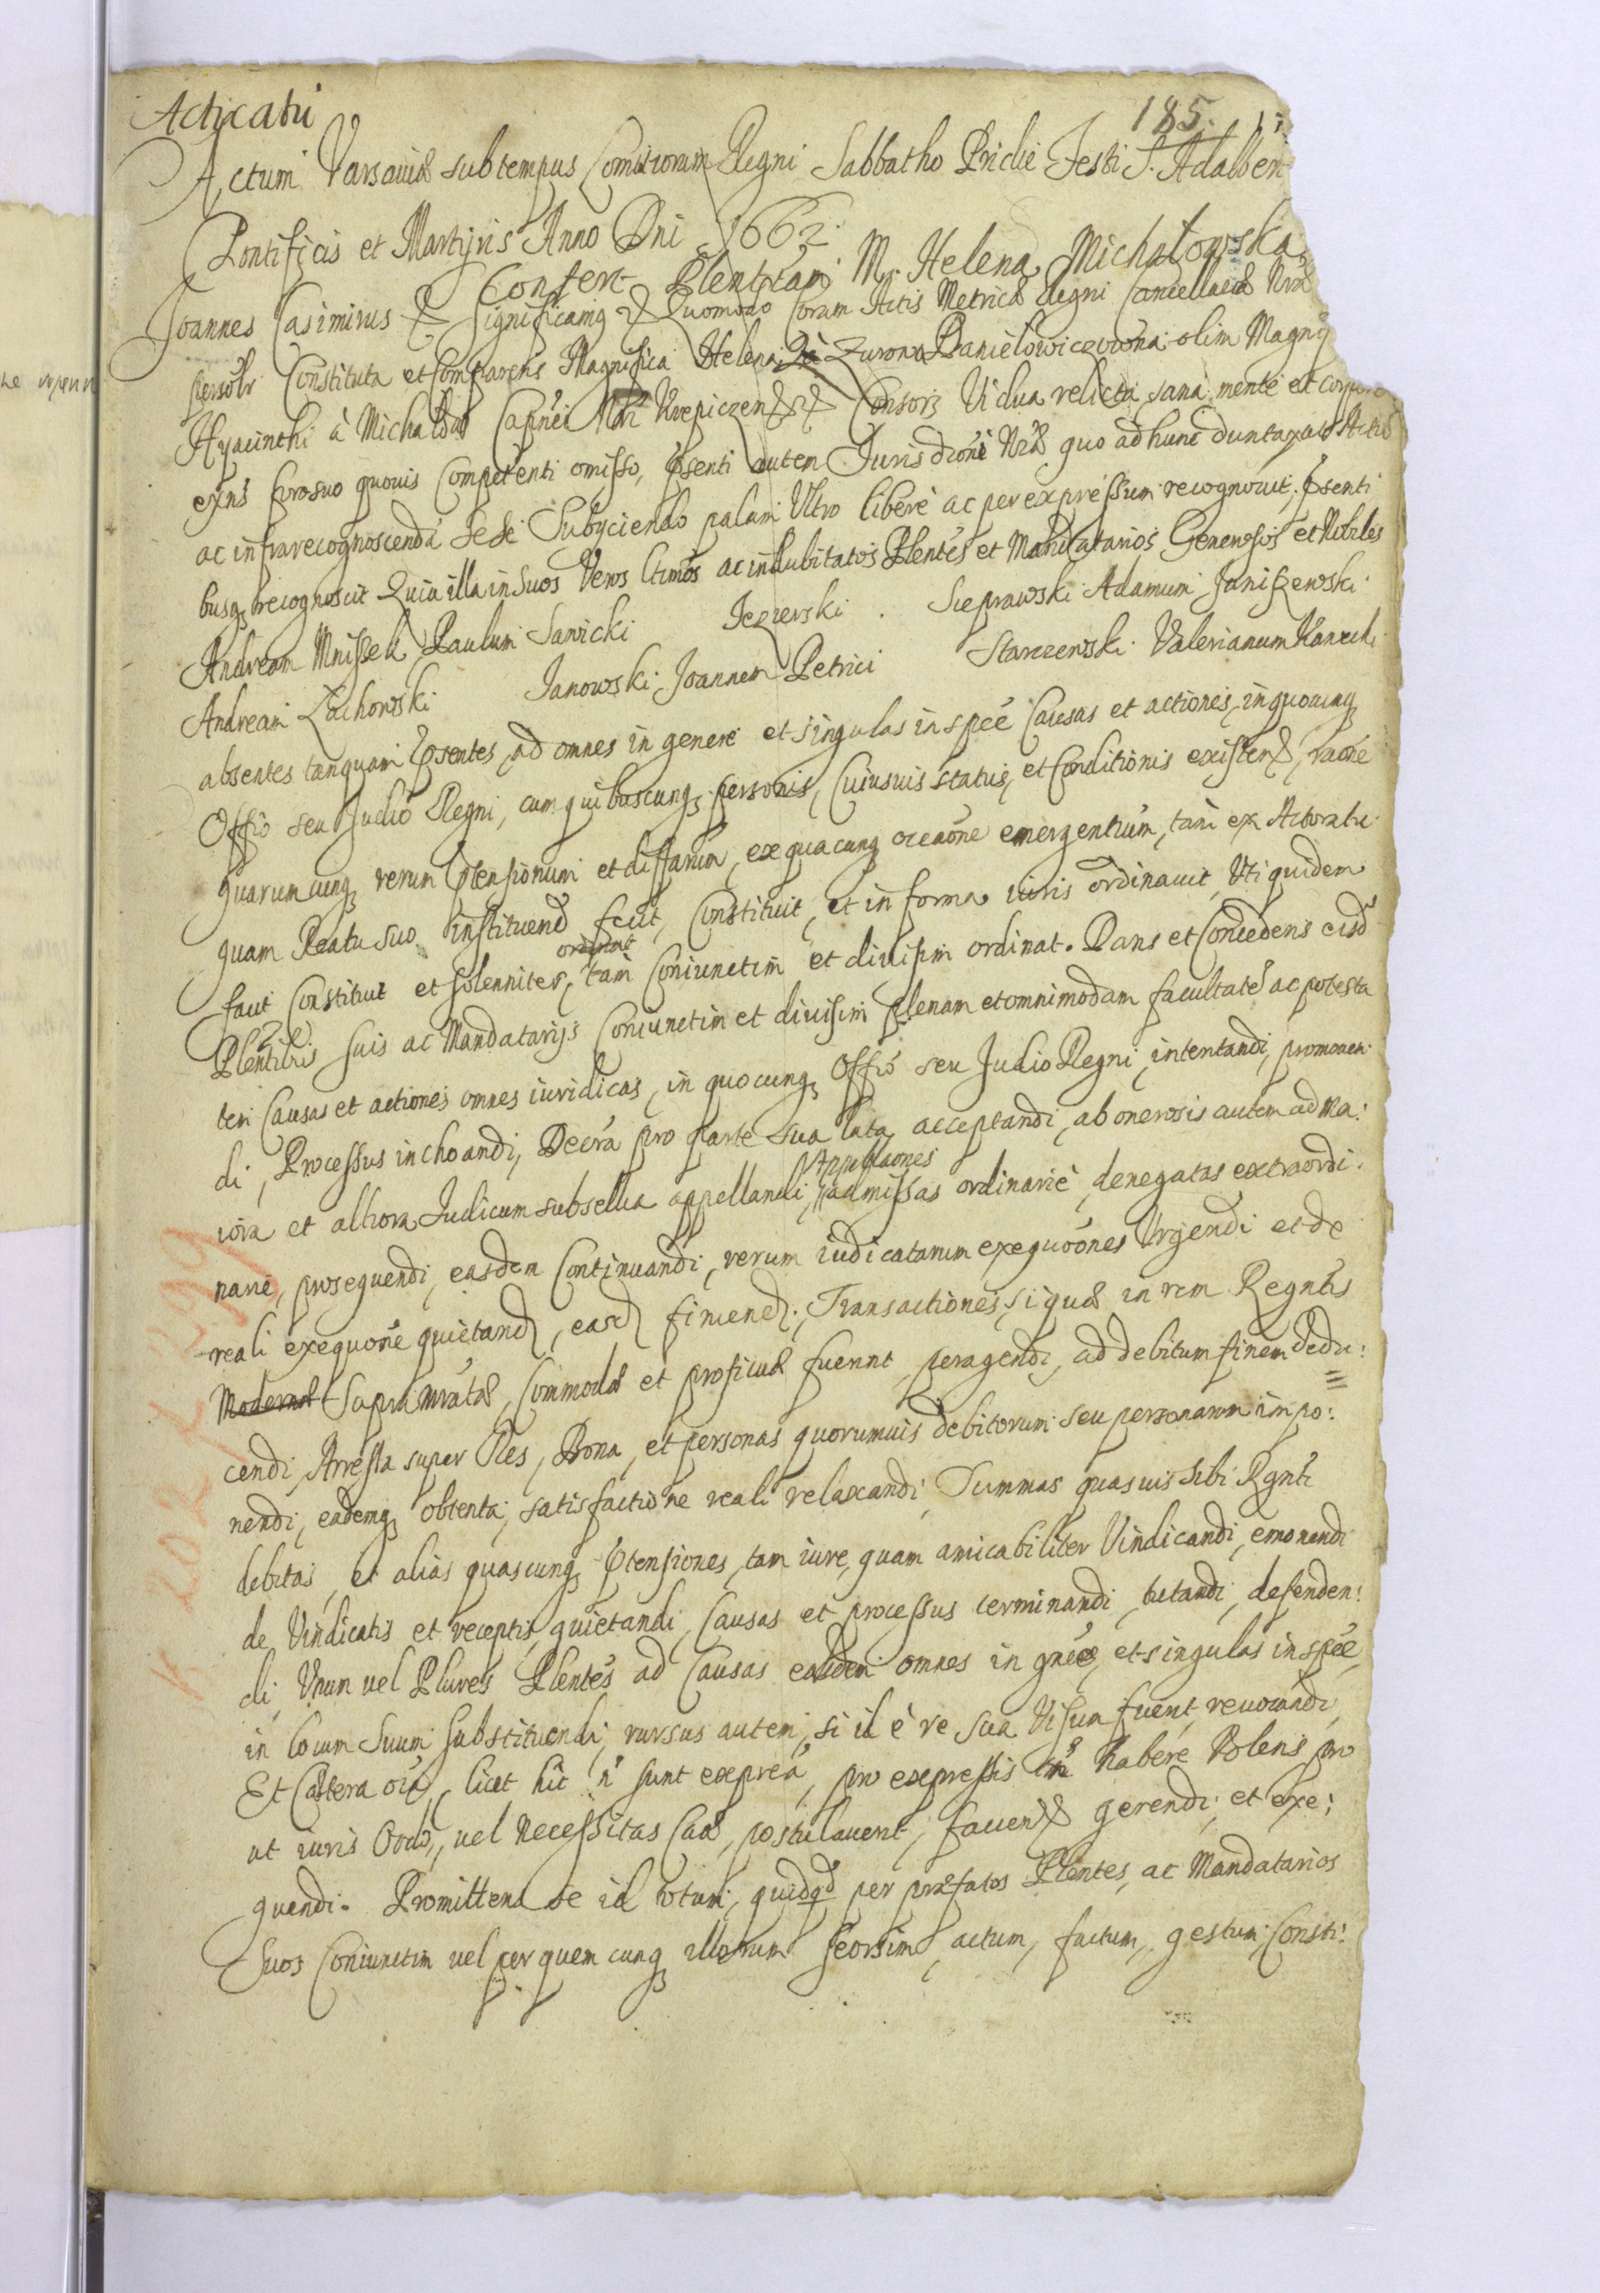 Acticatū
185.
Actum Varsaviæ sub tempus Comitiorum Regni Sabbatho Pridie Festi S. Adalber
Pontificis et Martyris Anno Dni 1662
Confert Plentiam M. Helena Michałowska
Joannes Casimirus & Significamq & Quomodo Coram Actis Metricæ Regni Cancellariæ Nræ
personlr Constituta et Comparens Magnifica Helena de Zurow Danielowiczowna olim Magnifi
Hyacinthi à Michałow Capnei Nri Krepiczen && Consors Vidua relicta sana mente et corpore
exns foro suo quovis Competenti omisso, Psenti autem Jurisdioni Nræ quo ad hunc duntaxat Actū
ac infra recognoscenda sese Subyciendo palam Ultro liberè ac per expressum recognovit, Psenti
busq recognoscit Quia illa in Suos Veros ltimos ac indubitatos Plentes et Mandatarios Generosos et Nobiles
Andream Mniszek Paulum Sawicki Jezierski Sieprawski Adamum Janiszewski
Andream Lachowski Janowski Joannem Petrici Starczewski Valerianum
absentes tanquam Psentes, ad omnes in genere et singulas in spée Causas et actiones, in quocunq
Offio seu Judio Regni, cum quibuscunq personis, Cuiusvis status, et Conditionis existen, raone
quarumcunq rerum Ptensionum et diffarum, ex quacunq occaone emergentium, tam ex Actoratu
quam Reatu suo instituend fecit, Constituit, et in forma iuris ordinavit, Uti quidem
facit Constituit et solenniter ordinat, tam Coniunctim et divisim ordinat. Dans et Concedens eisd
Plentibus suis ac Mandatarijs Coniunctim et divisim plenam et omnimodam facultate ac potesta
tem Causas et actiones omnes iuridicas, in quocunq Offio seu Judio Regni, intentandi, promoven
di, Processus inchoandi, Decra pro parte sua lata acceptandi, ab onerosis autem ad Ma:
iora et altiora Judicum subsellia appellandi, Appellaones admissas ordinariè, denegatas extraordi:
narie, prosequendi, easdem Continuandi, rerum iudicatarum exequoones Urgendi et de
reali exequone quietand, easd finiend: Transactiones, si quæ in rem Regntis
Modernæ Supra nratæ, Commodæ et proficuæ fuerint, peragendi, ad debitum finem dedu:
cendi, Arresta super Res, Bona, et personas quorumvis debitorum seu personarum impo:
nendi, eademq obtenta, satisfactione reali relaxandi, Summas quasvis sibi Rgnti
debitas, et alias quascunq Ptensiones, tam iure, quam amicabiliter Vindicandi, emonendi
de Vindicatis et receptis quietandi, Causas et processus terminandi, tutandi, defenden:
di, Unum vel Plures Plentes ad Causas easdem omnes in gnée, et singulas in spée,
in locum Suum substituendi, rursus autem, si id è re sua Visum fuerit, revocandi,
Et Cætera oia, licet hic n sunt expréa, pro expressis tn habere Volens pro
ut iuris Ordo, vel Necessitas Cæ, postulaverit, faciend gerendi, et exe:
quendi. Promittens se id totum, quidqd per præfatos Plentes, ac Mandatarios
Suos Coniunctim vel per quem cunq illorum seorsim, actum, factum, gestum, Consti: